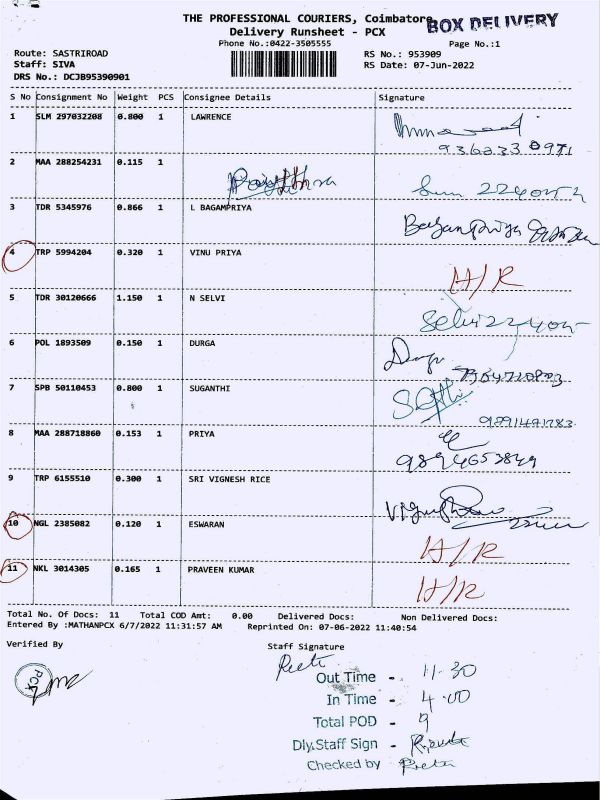 THE PROFESSIONAL COURIERS, Coimbatore
BOX DELIVERY
Delivery Runsheet - PCX
Phone No.:0422-3505555
Page No.:1
Route: SASTRIROAD
RS No.: 953909
Staff: SIVA
RS Date: 07-Jun-2022
DRS No.: DCJB95390901
S No Consignment No Weight PCS Consignee Details Signature
1 SLM 297032208 0.800 1 LAWRENCE
2 MAA 288254231 0.115 1
3 TDR 5345976 0.866 1 L BAGAMPRIYA
4 TRP 5994204 0.320 1 VINU PRIYA H/R
5 TDR 30120666 1.150 1 N SELVI Selvi
6 POL 1893509 0.150 1 DURGA
7 SPB 50110453 0.800 1 SUGANTHI
8 MAA 288718860 0.153 1 PRIYA
9894653849
9 TRP 6155510 0.300 1 SRI VIGNESH RICE
10 NGL 2385082 0.120 1 ESWARAN H/R
11 NKL 3014305 0.165 1 PRAVEEN KUMAR H/R
Total No. Of Docs: 11 Total COD Amt: 0.00 Delivered Docs: Non Delivered Docs:
Entered By :MATHANPCX 6/7/2022 11:31:57 AM Reprinted On: 07-06-2022 11:40:54
Verified By Staff Signature
PCX
Out Time - 11.30
In Time - 4.00
Total POD - 9
Dly.Staff Sign -
Checked by -